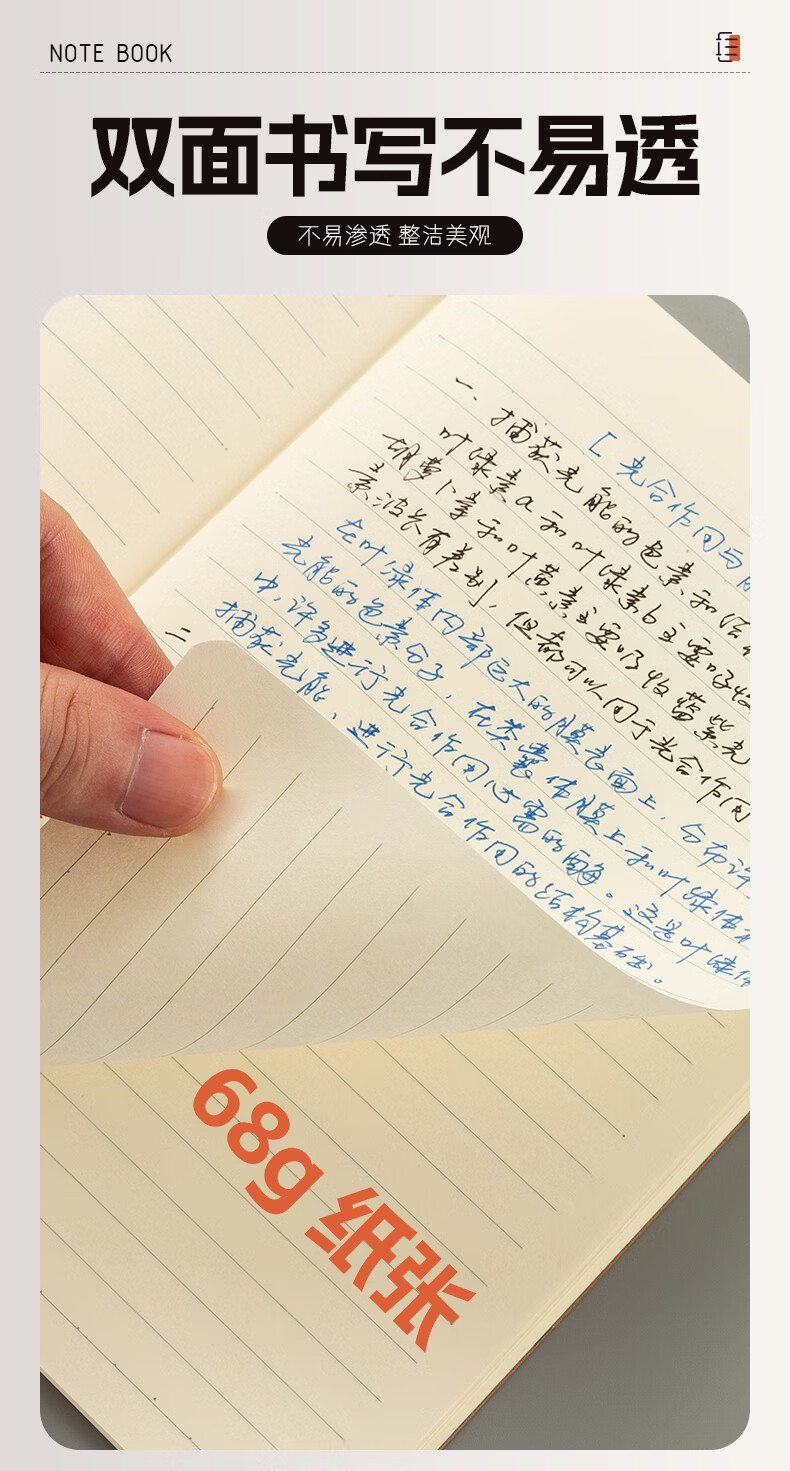 NOTE BOOK
双面书写不易透
不易渗透 整洁美观
[光合作用与
一、捕获光能的色素和结
叶绿素a和叶绿素b主要吸收
胡萝卜素和叶黄素主要吸收蓝紫光
素波长有差别，但都可以用于光合作用
在叶绿体内部巨大的膜表面上，分布许
光能的色素分子，在类囊体膜上和叶绿体
中，许多进行光合作用必需的酶。这是叶绿体
捕获光能、进行光合作用的结构基础。
二
68g 纸张